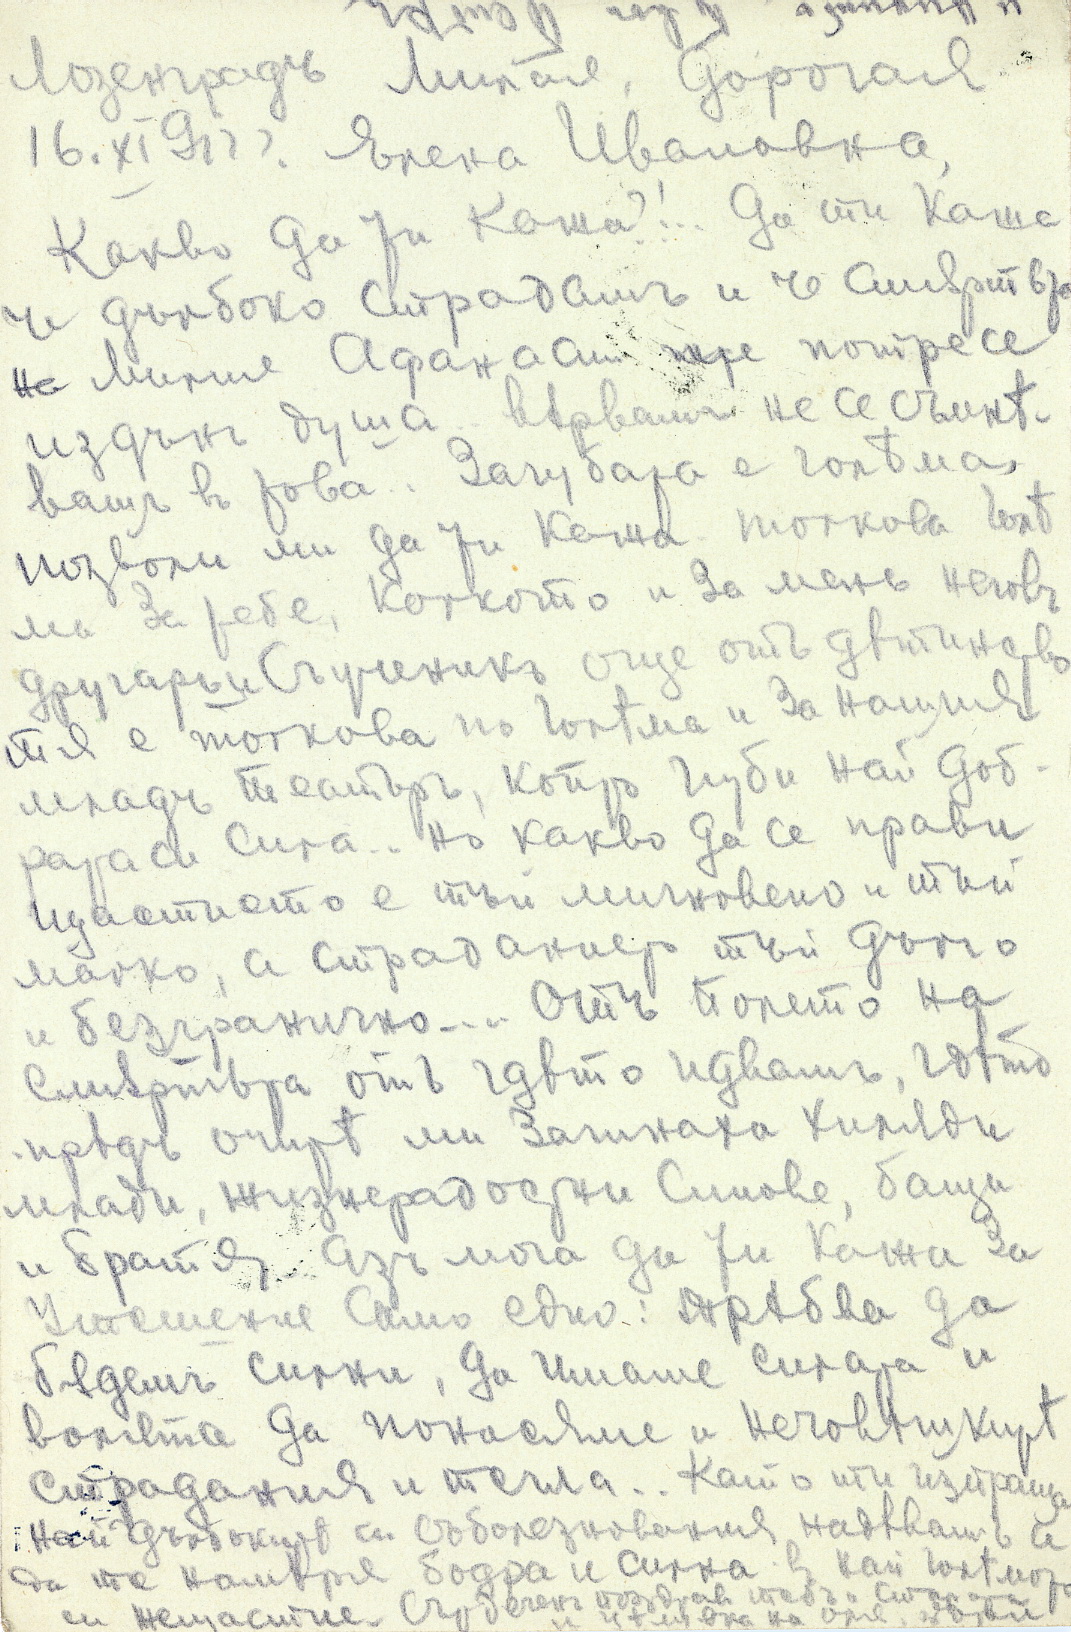 Лозенградъ Милая, Дорогая
16. XI 912 г. Елена Ивановна,
Какво да ти кажа?!... Да ти кажа
че дълбоко страдамъ и че смъртьта
на милия Афанасий ме потресе
издънъ душа.. вѣрвамъ не се съмнѣ-
вашъ въ това.. Загубата е голѣма,
позволи ми да ти кажа толкова голѣ
ма за тебе, колкото и за менъ неговъ
другарь и съученикъ още отъ дѣтинство
тя е толкова по голѣма и за нашия
младъ театъръ, който губи най доб-
рата си сила.. Но какво да се прави
щастието е тъй мигновено и тъй
малко, а страданието тъй дълго
и безгранично.... Отъ полето на
смъртьта отъ гдѣто идвамъ, гдѣто
прѣдъ очитѣ ми загинаха хиляди
млади, жизнерадостни синове, бащи
и братя, азъ мога да ти кажа за
утешение само едно: трѣбва да
бѫдемъ силни, да имаме силата и
волята да понасяме и нечовѣшкитѣ
страдания и тегла.. Като ти изпращам
най дълбокитѣ си съболезнования надѣвамъ се
да те намѣря бодра и силна въ най голѣмото
си нещастие. Сърдеченъ поздрав тебъ и